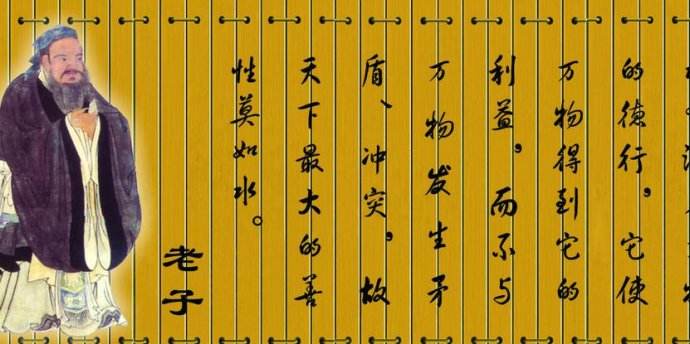 的德行，它使
万物得到它的
利益，而不与
万物发生矛
盾、冲突，故
天下最大的善
性莫如水。
老子